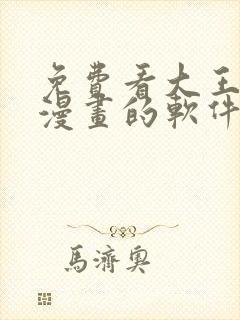 免費看大王
漫畫的軟件
馬濟奧